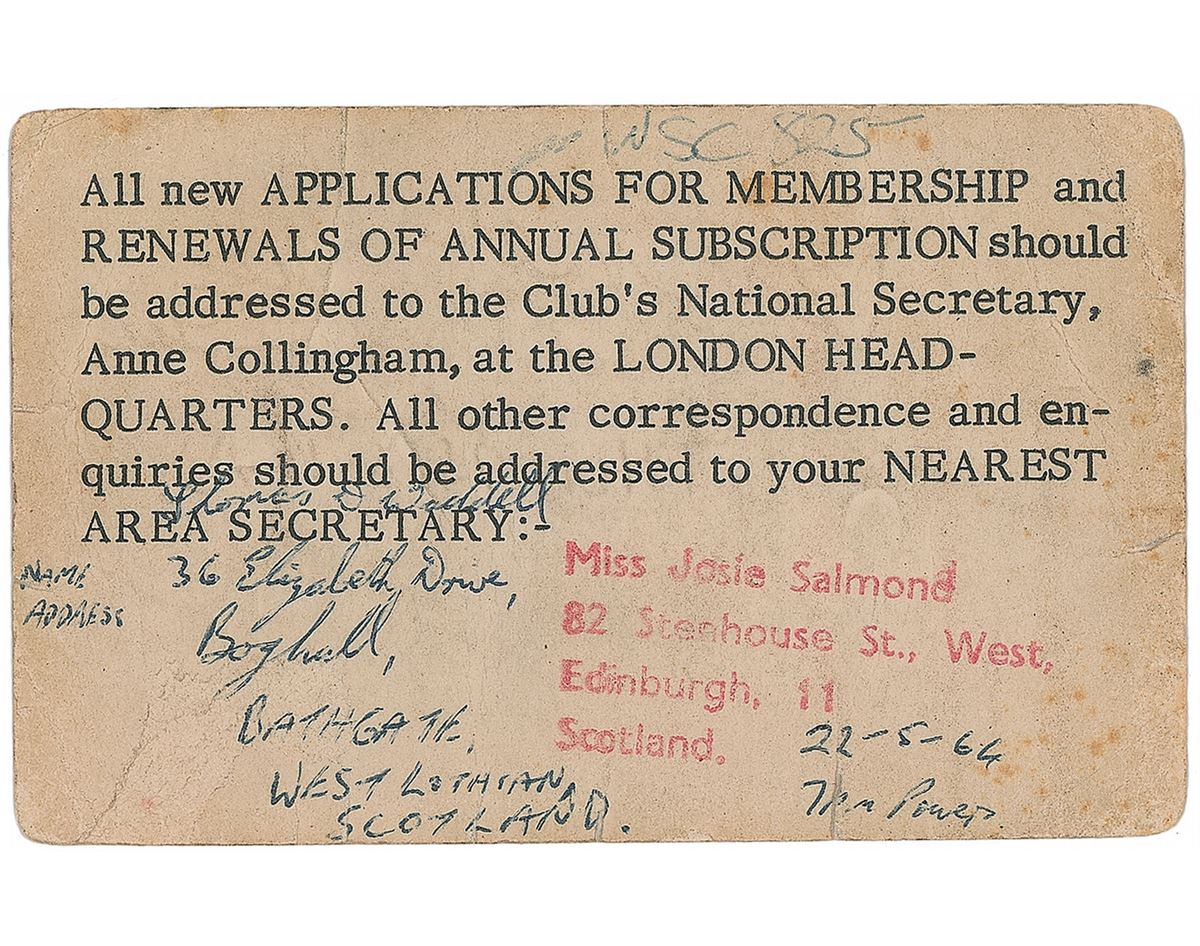 WSC 825
All new APPLICATIONS FOR MEMBERSHIP and
RENEWALS OF ANNUAL SUBSCRIPTION should
be addressed to the Club's National Secretary,
Anne Collingham, at the LONDON HEAD-
QUARTERS. All other correspondence and en-
quiries should be addressed to your NEAREST
AREA SECRETARY:-
Thomas D Waddell
NAME
ADDRESS
36 Elizabeth Drive,
Boghall,
BATHGATE,
WEST LOTHIAN,
SCOTLAND.
Miss Josie Salmond
82 Stenhouse St., West,
Edinburgh, 11
Scotland.
22-5-64
Power